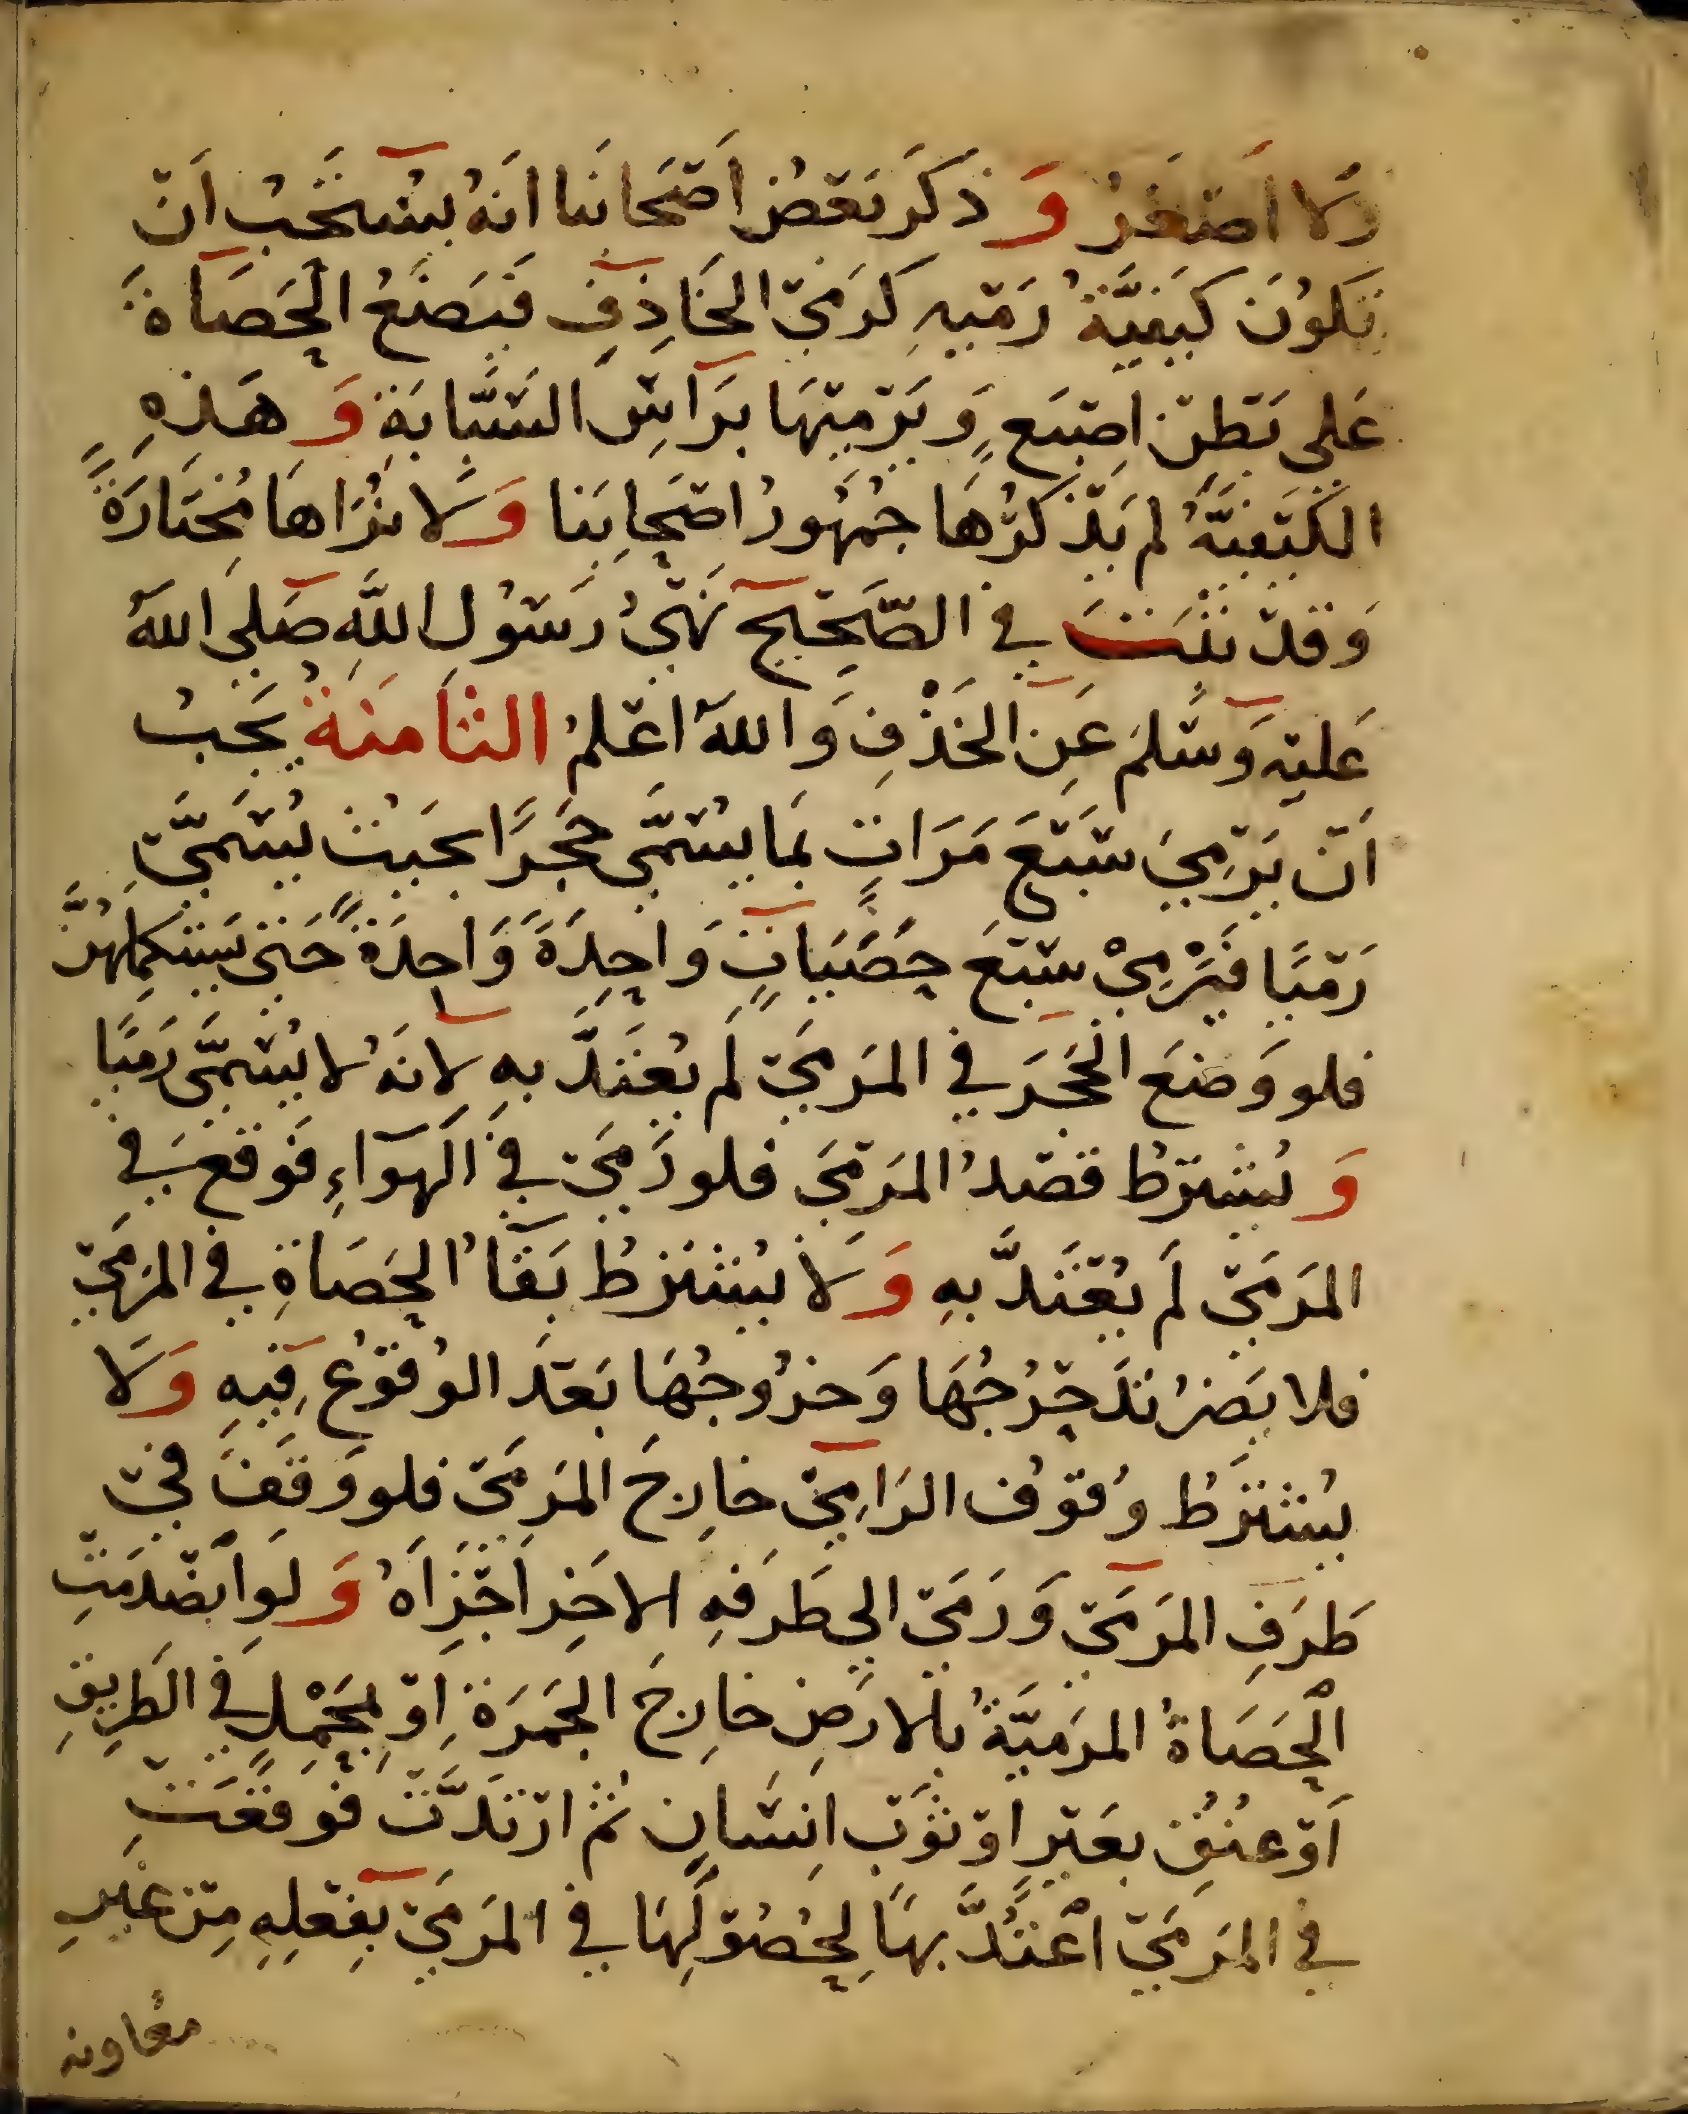 وَلَا اَصْغَرُ وَذَكَرَ بَعْضُ اَصْحَابِنَا اَنهُ يُسْتَحَبُ اَنْ
تكوُنَ كَيفيَّةُ رَمْيهِ كرَمْيِ الخَاذِفِ فَيَضَعُ الحَصَاةَ
عَلى بَطْنِ اِصْبَعٍ وَيَرْمِيْهَا بِرَاسِ السَّبَّابَةِ وَهَذِهِ
الكَيْفيَّةُ لم يَذْكُرْهَا جُمْهُورُ اصْحَابِنَا وَلَا نُرَاهَا مُختَارَةً
وَقدْ ثبَتَ في الصَّحِيْحِ نَهْيُ رَسُوْلِ اللَّهِ صَلى اللهُ
عَليْهِ وَسَّلمَ عَنِ الخَذْفِ وَاللهُ اعْلمُ الثامنة يَجبُ
اَنْ يَرْمِيَ سَبْعَ مَرَاتٍ بمَا يُسَمَّى حَجَرًا بحَيْثُ يُسَمَّى
رَمْيًا فيَرْمِيْ سَبْعَ حَصَيَاتٍ وَاحِدَةً وَاحِدَةً حَتى يَستكمِلَهُنَّ
فلو وَضعَ الحَجَرَ في المَرمَى لَم يُعْتَدَّ بهِ لانَهُ لا يُسَمَّى رَميًا
وَيُشترَطُ قصْدُ المَرْمَى فلو رَمَى في الهَوَآءِ فَوَقعَ في
المَرمَى لَم يُعْتَدَّ بهِ وَلَا يُشتَرَطُ بَقَآءُ الحَصَاةِ في المَرمَى
فلا يَضرُ تدَحْرُجُهَا وَخرُوجُهَا بَعْدَ الوُقوْعِ فِيْهِ وَلَا
يُشتَرَطُ وُقوْفُ الرَامِيْ خارِجَ المَرمَى فلو وَقَفَ فيْ
طَرَفِ المَرمَى وَرَمَى الى طَرَفهِ الاخَرِ اَجْزَاَهُ وَلَوِ انْصَدَمَتِ
الحَصَاةُ المَرْمَيَّةُ بالارَضِ خارِجَ الجَمرَةِ اوْ بِمَحْمِلٍ في الطَرِيقِ
اَوْ عنُقِ بعَيْرٍ اوْ ثوَبِ اِنسَانٍ ثمُ ارْتدَّتْ فوَقعَتْ
في المَرمَى اعْتَدَّ بهَا لِحُصُوْلِهَا في المَرمَى بِفعْلِهِ مِنْ غيْرِ
معاونة